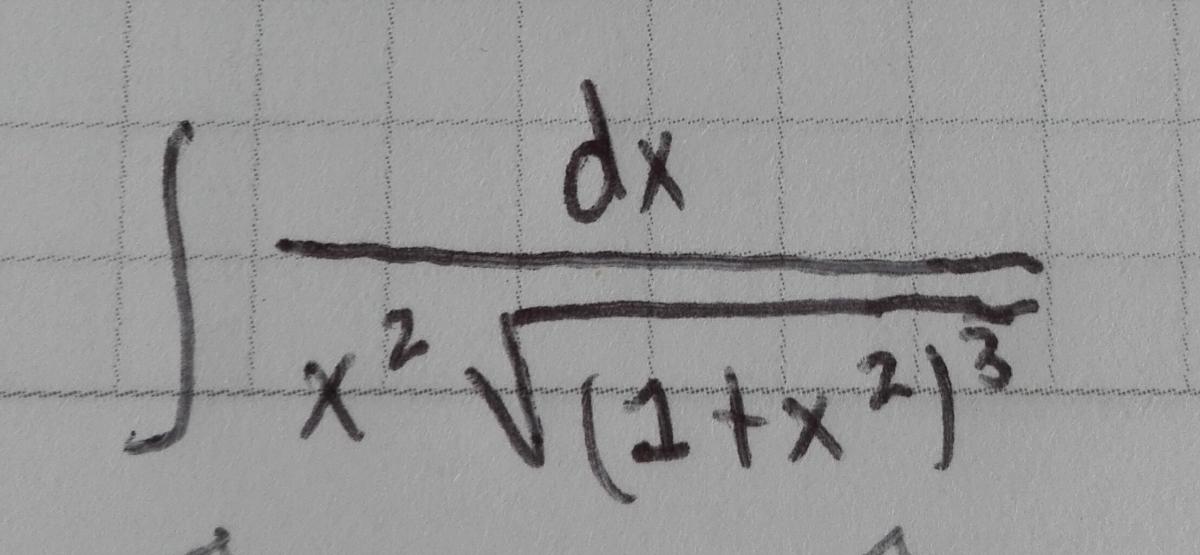 ∫ dx / (x² √((1+x²)³))